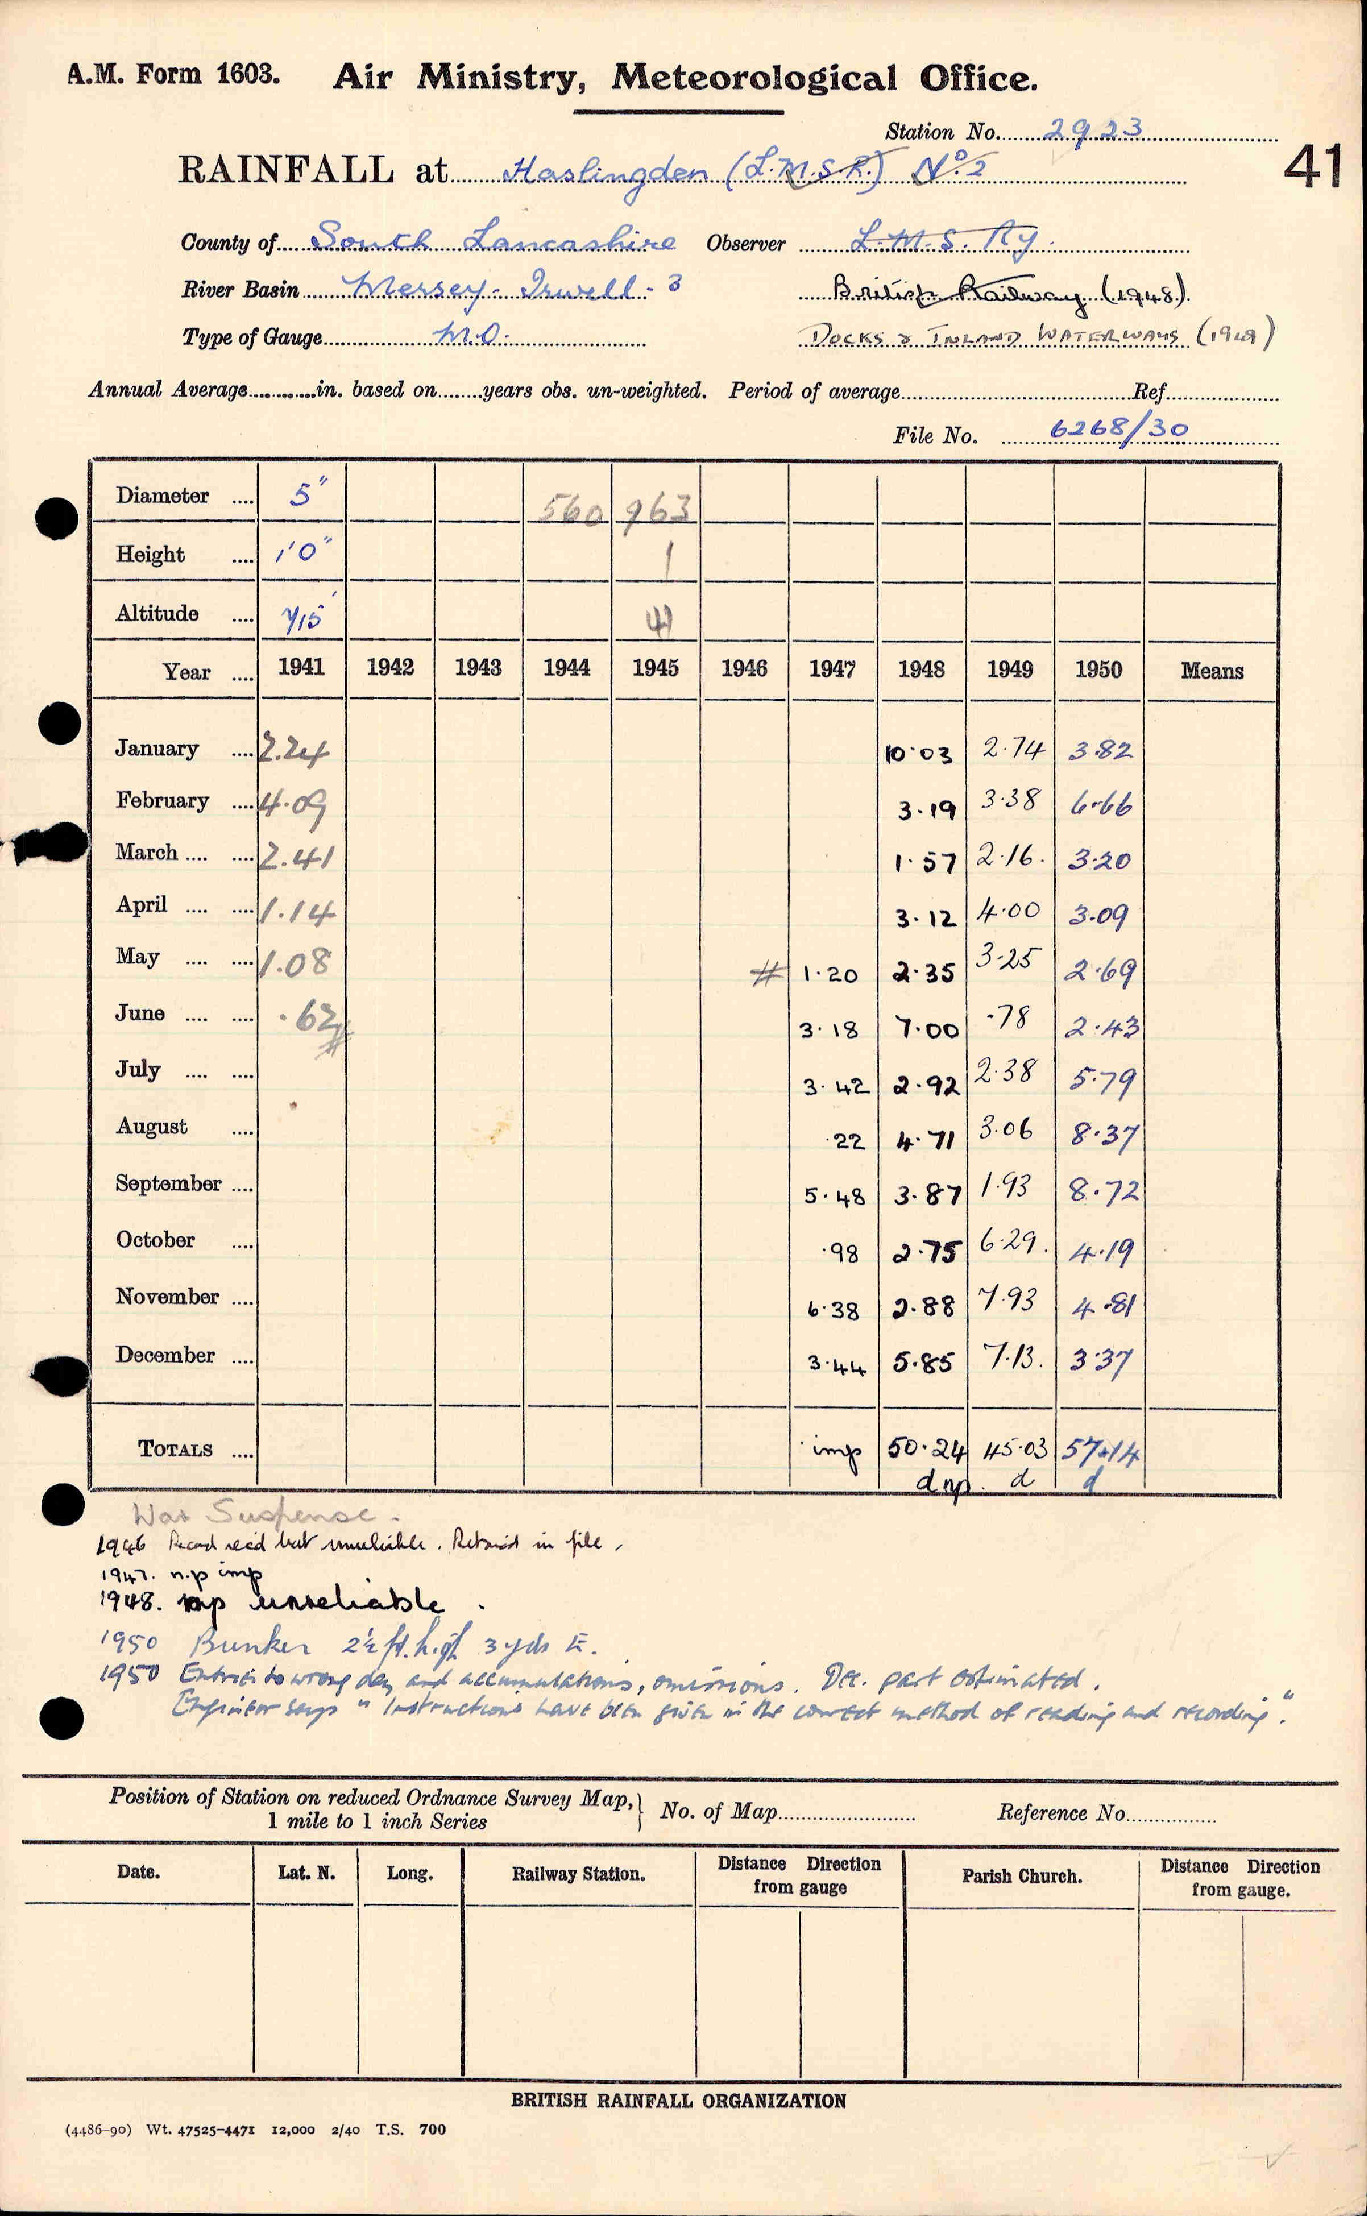 A.M. Form 1603. Air Ministry, Meteorological Office.
Station No. 2923
41
RAINFALL at Haslingden (L.M.S.R.) No. 2
County of South Lancashire Observer L.M.S. Ry.
River Basin Mersey - Irwell - 3 British Railway (1948)
Type of Gauge M.O. DOCKS & INLAND WATERWAYS (1949)
Annual Average in. based on years obs. un-weighted. Period of average Ref.
File No. 6268/30
Diameter 5" 560 963
Height 1'0" 1
Altitude 715' 41
Year 1941 1942 1943 1944 1945 1946 1947 1948 1949 1950 Means
January 2.24 10.03 2.74 3.82
February 4.09 3.19 3.38 6.66
March 2.41 1.57 2.16 3.20
April 1.14 3.12 4.00 3.09
May 1.08 # 1.20 2.35 3.25 2.69
June .62 # 3.18 7.00 .78 2.43
July 3.42 2.92 2.38 5.79
August .22 4.71 3.06 8.37
September 5.48 3.87 1.93 8.72
October .98 2.75 6.29 4.19
November 6.38 2.88 7.93 4.81
December 3.44 5.85 7.13 3.37
TOTALS imp 50.24 45.03 57.14
d np. d d
War Suspense.
1946 Record recd but unreliable. Retained in file.
1947. n.p imp
1948. np unreliable.
1950 Bunker 2½ ft. high 3 yds E.
1950 Entries to wrong day and accumulations, omissions. Dec. part estimated.
Engineer says "Instructions have been given in the correct method of reading and recording".
Position of Station on reduced Ordnance Survey Map, } No. of Map Reference No.
1 mile to 1 inch Series
Date. Lat. N. Long. Railway Station. Distance Direction from gauge Parish Church. Distance Direction from gauge.
BRITISH RAINFALL ORGANIZATION
(4486-90) Wt. 47525-4471 12,000 2/40 T.S. 700